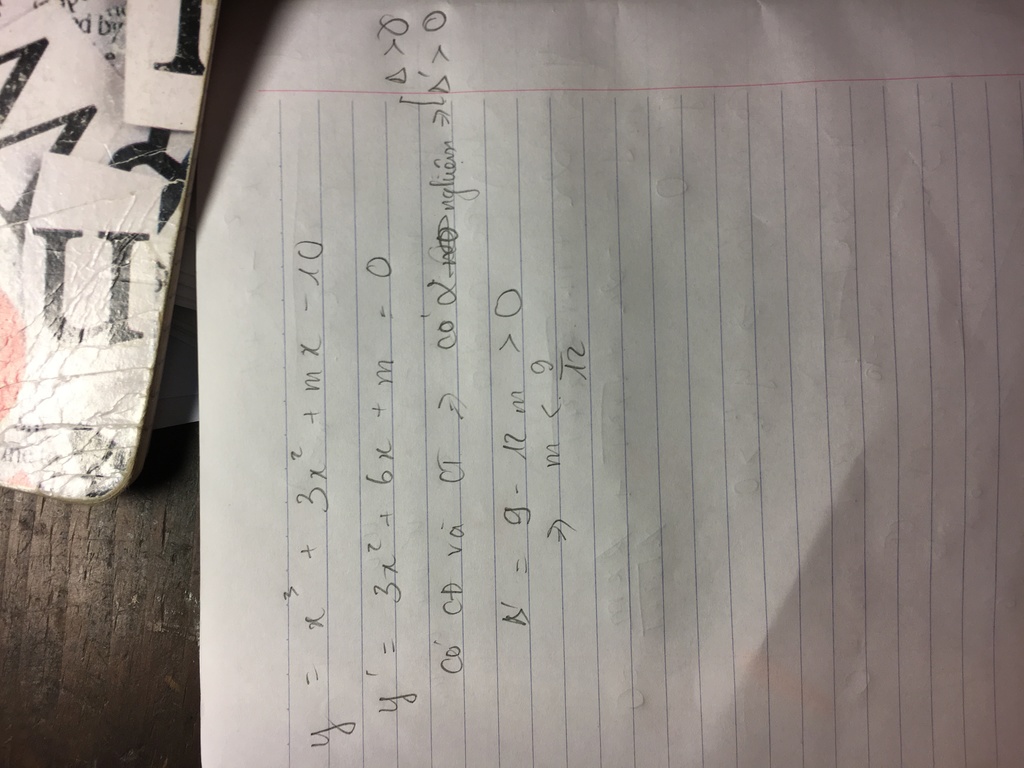 y = x³ + 3x² + mx - 10
y' = 3x² + 6x + m = 0
có CĐ và CT => có 2 nghiệm => [ Δ > 0
Δ' > 0
Δ' = 9 - 12m > 0
=> m < 9/12